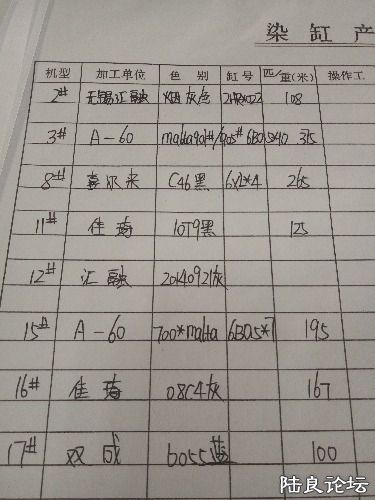 染缸产
机型 加工单位 色别 缸号 匹/重(米) 操作工
2# 无锡汇融 烟灰色 108
3# A-60 315
8# 喜尔来 C46黑 6X2*4 265
11# 佳琦 1079黑 125
12# 汇融 2014092灰
15# A-60 700*malta 6B05*7 195
16# 佳琦 08C4灰 167
17# 双成 6055蓝 100
陆良论坛